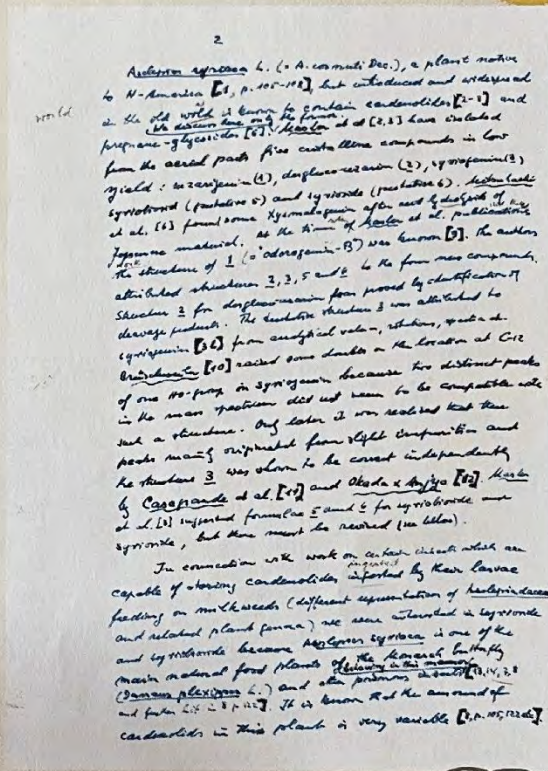 2
Asclepias syriaca L. (= A. cornuti Dec.), a plant native
to N-America [1, p. 105-108], but introduced and widespread
world
in the old world is known to contain cardenolides [2-5] and
We discuss here only the former.
pregnane-glycosides [6]. Masler et al [2,3] have isolated
from the aerial parts five crystalline compounds in low
yield: uzarigenin (1), desglucouzarin (2), syriogenin (3)
syriobioside (putative 5) and syrioside (putative 6). Mitsuhashi
et al. [6] found some Xysmalogenin after acid hydrolysis of
Japanese material. At the time of Masler et al. publications
the structure of 1 (= odorogenin-B) was known [9]. The authors
attributed structures 2, 3, 5 and 6 to the four new compounds.
Structure 2 for desglucouzarin was proved by identification of
cleavage products. The tentative structure 3 was attributed to
syriogenin from analytical values, rotations, spectra etc.
[10] raised some doubts on the location at C-12
of one HO-group in syriogenin because two distinct peaks
in the mass spectrum did not seem to be compatible with
such a structure. Only later it was realised that these
peaks mainly originated from slight impurities and
the structure 3 was shown to be correct independently
by Casagrande et al. and Okada & Anjyo [12]. Masler
et al. [3] suggested formulae 5 and 6 for syriobioside and
syrioside, but these must be revised (see below).
In connection with work on certain insects which are
capable of storing cardenolides ingested by their larvae
feeding on milkweeds (different representatives of Asclepiadaceae
and related plant genera) we were interested in syrioside
and syriobioside because Asclepias syriaca is one of the
main natural food plants of the Monarch butterfly
(Danaus plexippus L.) and other poisonous insects
It is known that the amount of
cardenolides in this plant is very variable